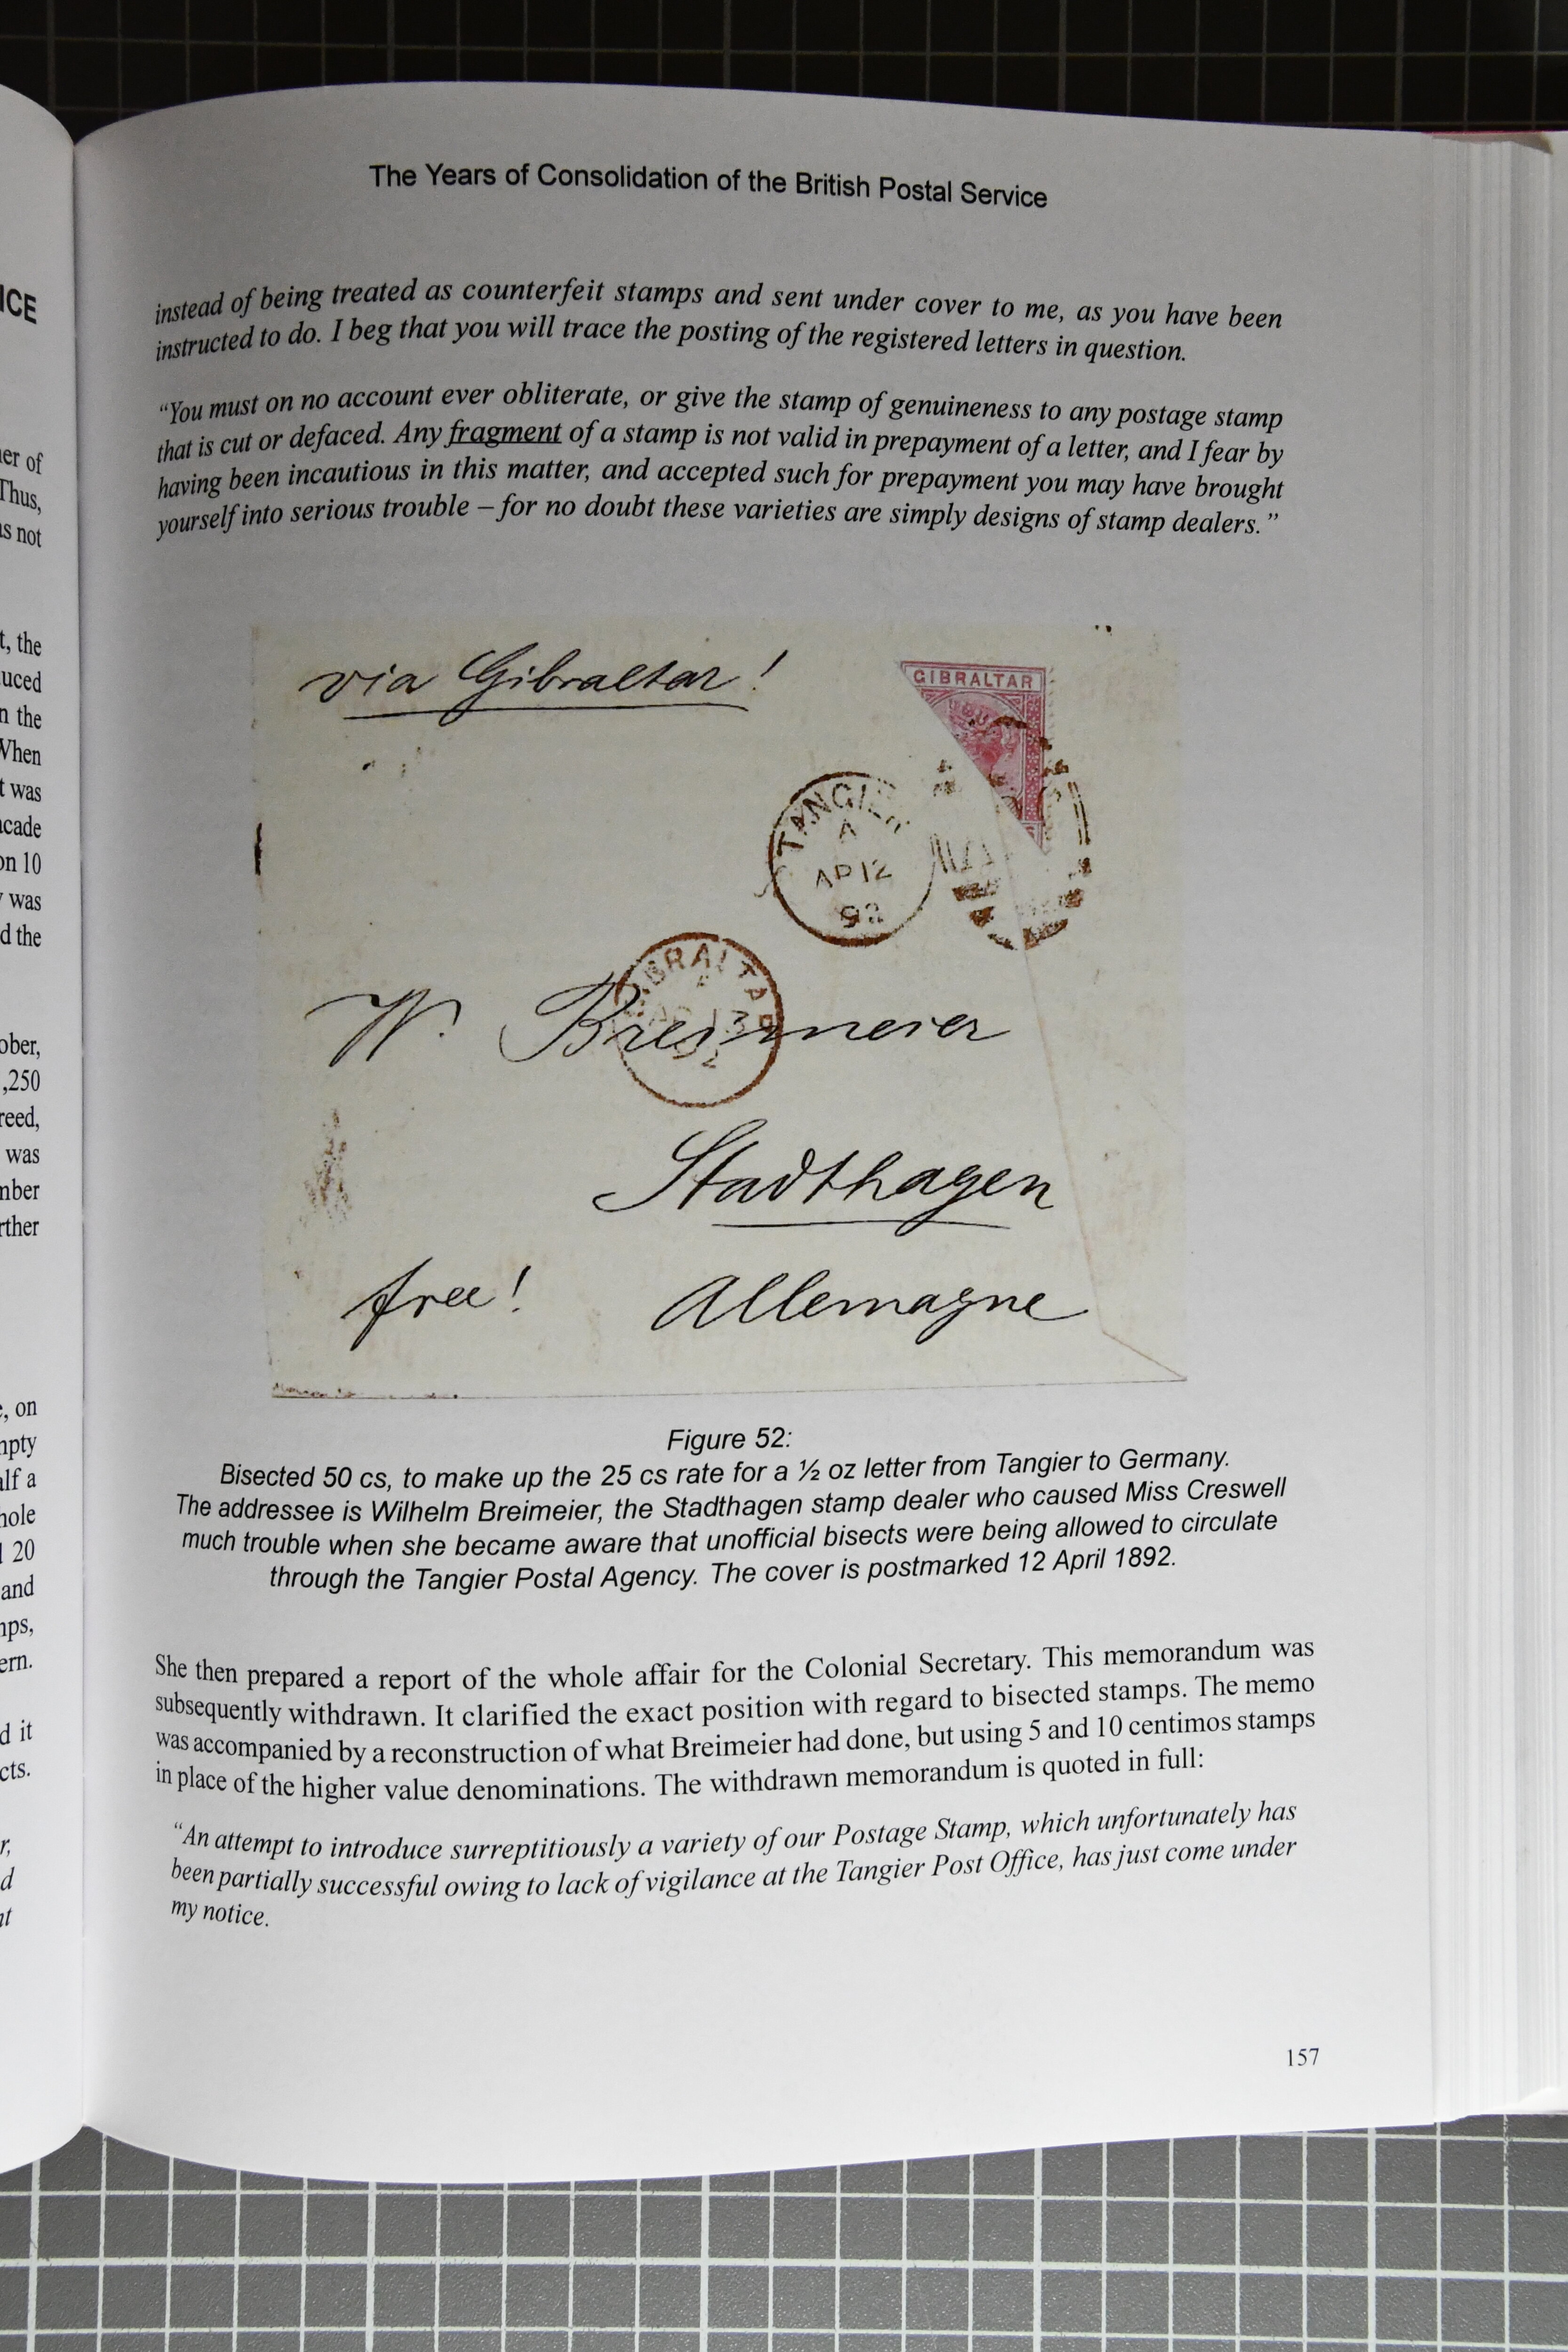 ICE
er of
Thus,
as not
t, the
uced
n the
When
t was
cade
on 10
was
d the
ober,
,250
reed,
was
mber
rther
, on
mpty
alf a
hole
20
and
mps,
ern.
d it
cts.
r,
d
nt
The Years of Consolidation of the British Postal Service
instead of being treated as counterfeit stamps and sent under cover to me, as you have been
instructed to do. I beg that you will trace the posting of the registered letters in question.
“You must on no account ever obliterate, or give the stamp of genuineness to any postage stamp
that is cut or defaced. Any fragment of a stamp is not valid in prepayment of a letter, and I fear by
having been incautious in this matter, and accepted such for prepayment you may have brought
yourself into serious trouble – for no doubt these varieties are simply designs of stamp dealers.”
via Gibraltar!
GIBRALTAR
TANGIER
A
AP 12
92
GIBRALTAR
AP 13
92
W. Breimeier
Stadthagen
free! Allemagne
Figure 52:
Bisected 50 cs, to make up the 25 cs rate for a ½ oz letter from Tangier to Germany.
The addressee is Wilhelm Breimeier, the Stadthagen stamp dealer who caused Miss Creswell
much trouble when she became aware that unofficial bisects were being allowed to circulate
through the Tangier Postal Agency. The cover is postmarked 12 April 1892.
She then prepared a report of the whole affair for the Colonial Secretary. This memorandum was
subsequently withdrawn. It clarified the exact position with regard to bisected stamps. The memo
was accompanied by a reconstruction of what Breimeier had done, but using 5 and 10 centimos stamps
in place of the higher value denominations. The withdrawn memorandum is quoted in full:
“An attempt to introduce surreptitiously a variety of our Postage Stamp, which unfortunately has
been partially successful owing to lack of vigilance at the Tangier Post Office, has just come under
my notice.
157